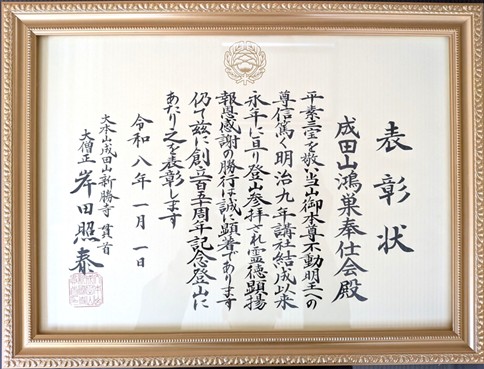 表彰状
成田山鴻巣奉仕会殿
平素三宝を敬い当山御本尊不動明王への
尊信篤く明治九年講社結成以来
永年に亘り登山参拝され霊徳顕揚
報恩感謝の勝行は誠に顕著であります
仍て茲に創立百五十周年記念登山に
あたり之を表彰します
令和八年一月一日
大本山成田山新勝寺貫首
大僧正 岸田照泰